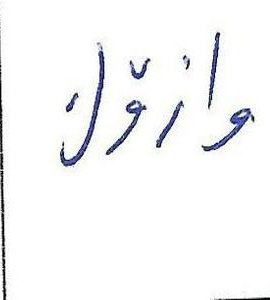 وازۆك